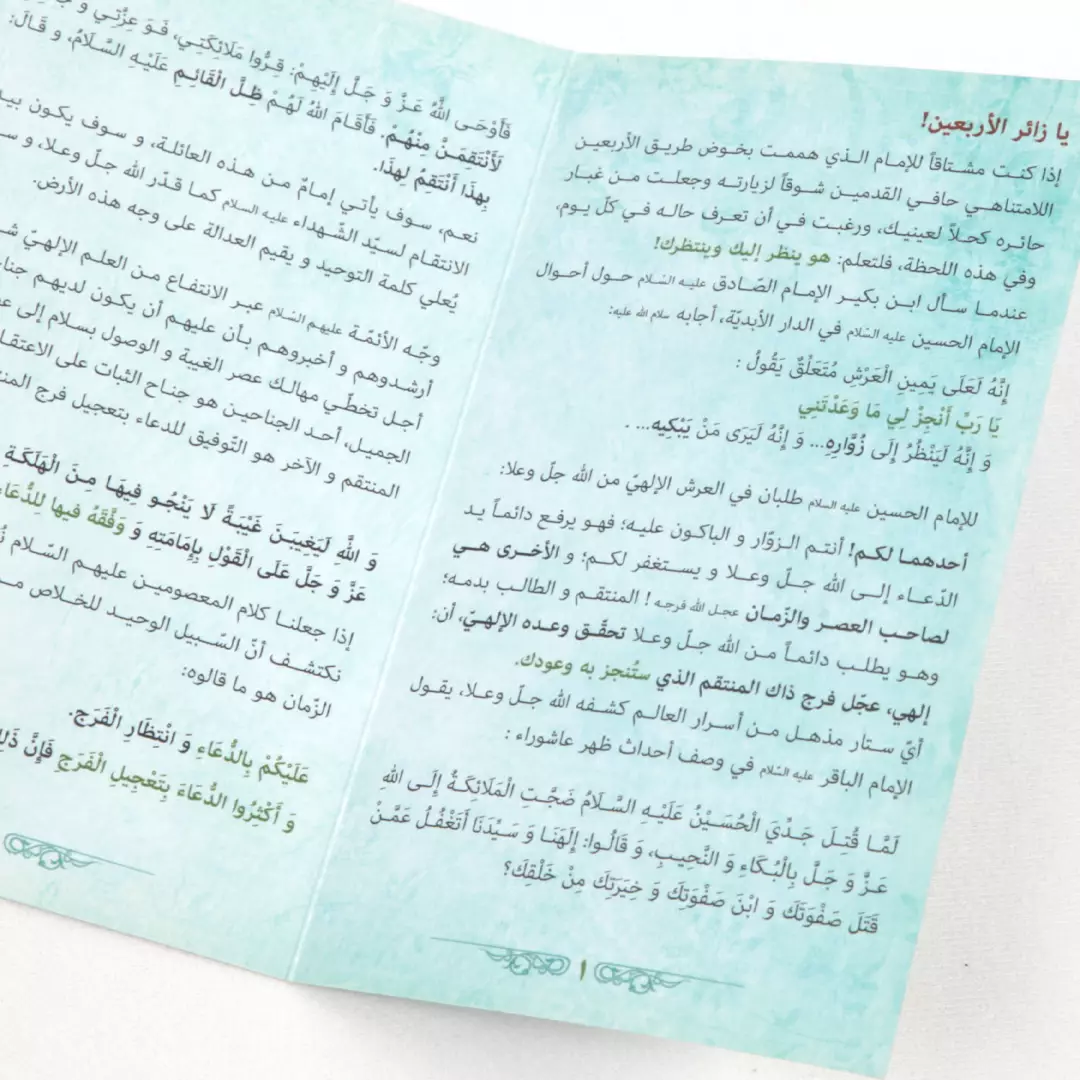 يا زائر الأربعين!
إذا كنت مشتاقاً للإمام الذي هممت بخوض طريق الأربعين
اللامتناهي حافي القدمين شوقاً لزيارته وجعلت من غبار
حائره كحلاً لعينيك، ورغبت في أن تعرف حاله في كلّ يوم،
وفي هذه اللحظة، فلتعلم: هو ينظر إليك وينتظرك!
عندما سأل ابن بكير الإمام الصّادق عليه السّلام حول أحوال
الإمام الحسين عليه السّلام في الدار الأبديّة، أجابه سلام الله عليه:
إِنَّهُ لَعَلَى يَمِينِ الْعَرْشِ مُتَعَلِّقٌ يَقُولُ :
يَا رَبِّ أَنْجِزْ لِي مَا وَعَدْتَنِي
وَ إِنَّهُ لَيَنْظُرُ إِلَى زُوَّارِهِ... وَ إِنَّهُ لَيَرَى مَنْ يَبْكِيهِ... .
للإمام الحسين عليه السلام طلبان في العرش الإلهيّ من الله جلّ وعلا:
أحدهما لكم! أنتم الزوّار و الباكون عليه؛ فهو يرفع دائماً يد
الدّعاء إلى الله جلّ وعلا و يستغفر لكم؛ و الأخرى هي
لصاحب العصر والزّمان عجل الله فرجه ! المنتقم و الطالب بدمه؛
وهو يطلب دائماً من الله جلّ وعلا تحقّق وعده الإلهيّ، أن:
إلهي، عجّل فرج ذاك المنتقم الذي ستُنجز به وعودك.
أيّ ستار مذهل من أسرار العالم كشفه الله جلّ وعلا، يقول
الإمام الباقر عليه السّلام في وصف أحداث ظهر عاشوراء :
لَمَّا قُتِلَ جَدِّيَ الْحُسَيْنُ عَلَيْهِ السَّلَامُ ضَجَّتِ الْمَلَائِكَةُ إِلَى اللهِ
عَزَّ وَ جَلَّ بِالْبُكَاءِ وَ النَّحِيبِ، وَ قَالُوا: إِلَهَنَا وَ سَيِّدَنَا أَتَغْفُلُ عَمَّنْ
قَتَلَ صَفْوَتَكَ وَ ابْنَ صَفْوَتِكَ وَ خِيَرَتِكَ مِنْ خَلْقِكَ؟
١
فَأَوْحَى اللهُ عَزَّ وَ جَلَّ إِلَيْهِمْ: قِرُّوا مَلَائِكَتِي، فَوَ عِزَّتِي وَ
لَأَنْتَقِمَنَّ مِنْهُمْ. فَأَقَامَ اللهُ لَهُمْ ظِلَّ الْقَائِمِ عَلَيْهِ السَّلَامُ، وَ قَالَ:
بِهَذَا أَنْتَقِمُ لِهَذَا.
نعم، سوف يأتي إمامٌ من هذه العائلة، و سوف يكون
الانتقام لسيّد الشّهداء عليه السلام كما قدّر الله جلّ وعلا، و
يُعلي كلمة التوحيد و يقيم العدالة على وجه هذه الأرض.
وجّه الأئمّة عليهم السّلام عبر الانتفاع من العلم الإلهيّ
أرشدوهم و أخبروهم بأن عليهم أن يكون لديهم
أجل تخطّي مهالك عصر الغيبة و الوصول بسلام إلى
الجميل، أحد الجناحين هو جناح الثبات على
المنتقم و الآخر هو التّوفيق للدعاء بتعجيل فرج
وَ اللهِ لَيَغِيبَنَّ غَيْبَةً لَا يَنْجُو فِيهَا مِنَ الْهَلَكَةِ
عَزَّ وَ جَلَّ عَلَى الْقَوْلِ بِإِمَامَتِهِ وَ وَفَّقَهُ فيها لِلدُّعَاءِ
إذا جعلنا كلام المعصومين عليهم السّلام
نكتشف أنّ السّبيل الوحيد للخلاص
الزّمان هو ما قالوه:
عَلَيْكُمْ بِالدُّعَاءِ وَ انْتِظَارِ الْفَرَجِ.
وَ أَكْثِرُوا الدُّعَاءَ بِتَعْجِيلِ الْفَرَجِ فَإِنَّ